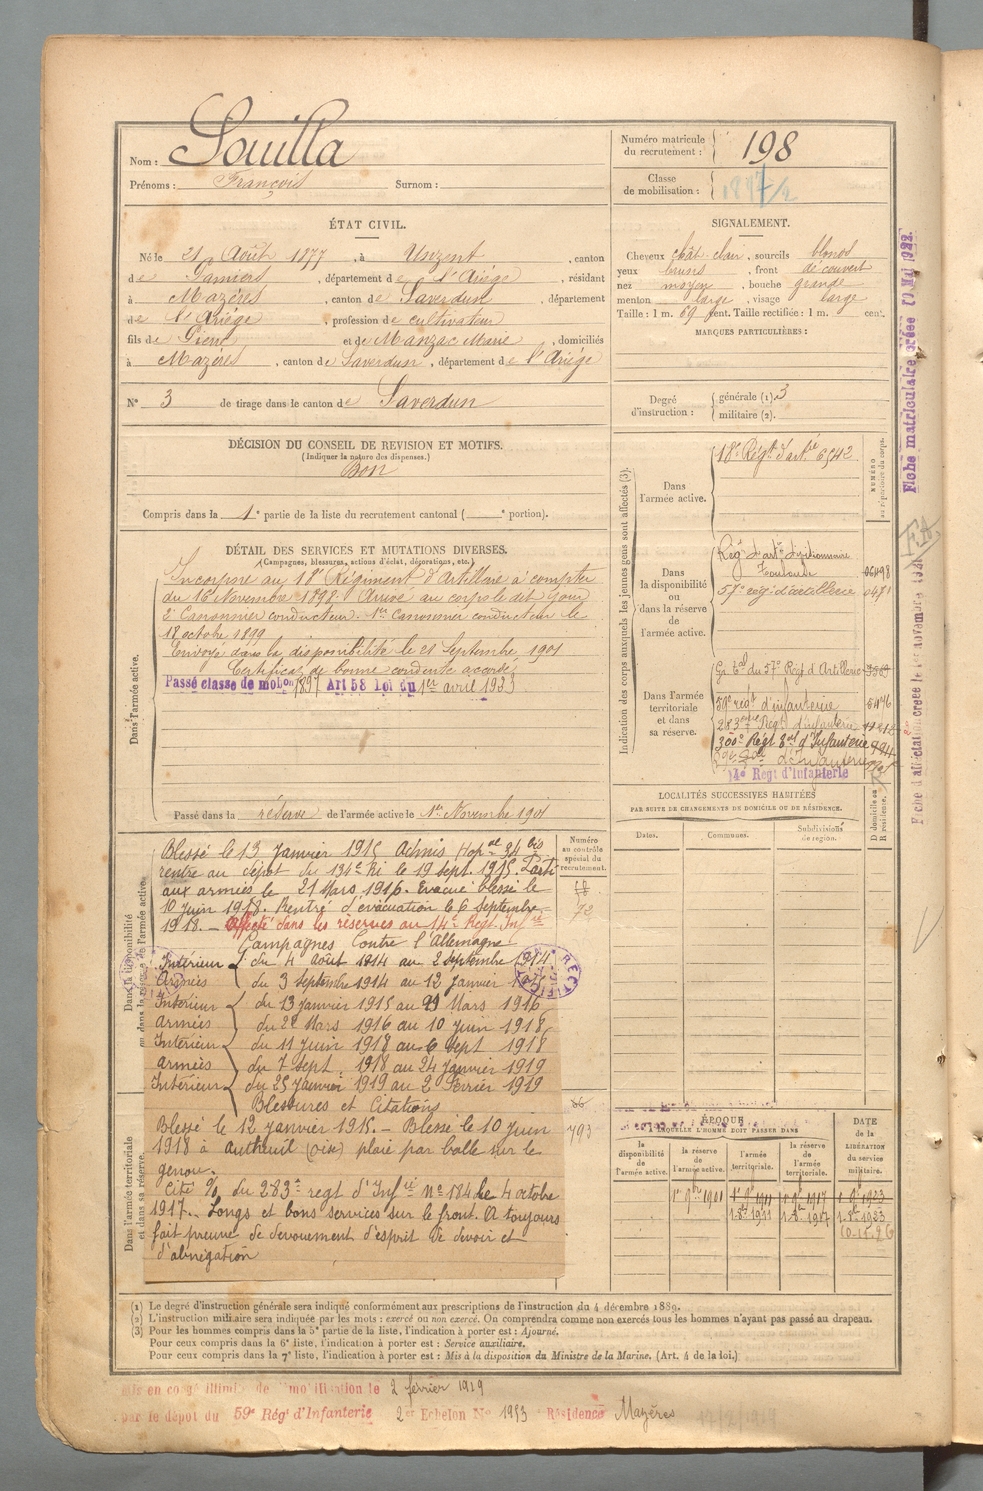 Nom : Souilla
Prénoms : François Surnom :
Numéro matricule du recrutement : 198
Classe de mobilisation : 1897/2
ÉTAT CIVIL.
Né le 21 Août 1877, à Unzent, canton
de Pamiers, département de l'Ariège, résidant
à Mazères, canton de Saverdun, département
de l'Ariège, profession de cultivateur
fils de Pierre et de Manzac Marie, domiciliés
à Mazères, canton de Saverdun, département de l'Ariège
N° 3 de tirage dans le canton de Saverdun
SIGNALEMENT.
Cheveux chât. clair, sourcils blonds
yeux bruns, front découvert
nez moyen, bouche grande
menton large, visage large
Taille : 1 m. 69 cent. Taille rectifiée : 1 m. cent.
MARQUES PARTICULIÈRES :
Degré d'instruction : générale (1). 3
militaire (2).
DÉCISION DU CONSEIL DE REVISION ET MOTIFS.
(Indiquer la nature des dispenses.)
Bon
Compris dans la 1e partie de la liste du recrutement cantonal ( e portion).
DÉTAIL DES SERVICES ET MUTATIONS DIVERSES.
(Campagnes, blessures, actions d'éclat, décorations, etc.)
Dans l'armée active.
Incorporé au 18e Régiment d'Artillerie à compter
du 16 Novembre 1898. Arrivé au corps le dit jour
2e Canonnier conducteur. 1er Canonnier conducteur le
18 octobre 1899
Envoyé dans la disponibilité le 21 Septembre 1901
Certificat de bonne conduite accordé
Passé classe de mobon 1897 Art 58 Loi du 1er avril 1933
Passé dans la réserve de l'armée active le 1er Novembre 1901
Indication des corps auxquels les jeunes gens sont affectés (3).
NUMÉRO au répertoire du corps.
Dans l'armée active.
18e Régt d'artie 6542
Dans la disponibilité ou dans la réserve de l'armée active.
Toulouse
57e rég. d'artillerie 0481
Dans l'armée territoriale et dans sa réserve.
Gr. tal du 57e Régt d'Artillerie
59e regt d'infanterie 5476
283eme Régt d'infanterie
300e Régt d'Infanterie
14e Régt d'Infanterie
LOCALITÉS SUCCESSIVES HABITÉES
PAR SUITE DE CHANGEMENTS DE DOMICILE OU DE RÉSIDENCE.
Dates. Communes. Subdivisions de région. D domicile ou R résidence.
Numéro au contrôle spécial du recrutement.
72
793
Dans la disponibilité ou dans la réserve de l'armée active.
Dans l'armée territoriale et dans sa réserve.
Blessé le 13 Janvier 1915 Admis Hopal 34 bis
rentre au dépôt du 134e Ri le 19 sept. 1915. Parti
aux armées le 21 Mars 1916. Evacué blessé le
10 juin 1918. Rentré d'évacuation le 6 Septembre
1918. — Affecté dans les réserves au 14e Régt. Infrie
Campagnes Contre l'Allemagne
Intérieur du 4 août 1914 au 2 septembre 1914
Armées du 3 septembre 1914 au 12 Janvier
RECTIFICATION
Intérieur du 13 janvier 1915 au 21 Mars 1916
armées du 22 Mars 1916 au 10 juin 1918
Intérieur du 11 juin 1918 au 6 Sept 1918
armées du 7 sept. 1918 au 24 janvier 1919
Intérieur du 25 janvier 1919 au 2 Février 1919
Blessures et Citations
Blessé le 12 janvier 1915. — Blessé le 10 juin
1918 à Autheuil (Oise) plaie par balle sur le
genou.
Cité O/ du 283e regt d'Infrie No 184 le 4 octobre
1917. Longs et bons services sur le front. A toujours
fait preuve de dévouement d'esprit de devoir et
d'abnégation
ÉPOQUE
À LAQUELLE L'HOMME DOIT PASSER DANS
la disponibilité de l'armée active.
la réserve de l'armée active.
l'armée territoriale.
la réserve de l'armée territoriale.
DATE de la LIBÉRATION du service militaire.
1er 9bre 1901 1er 9bre 1911 1er 9bre 1917 1er 9bre 1923
1.8bre 1911 1.8bre 1917 1.8bre 1923
(1) Le degré d'instruction générale sera indiqué conformément aux prescriptions de l'instruction du 4 décembre 1889.
(2) L'instruction militaire sera indiquée par les mots : exercé ou non exercé. On comprendra comme non exercés tous les hommes n'ayant pas passé au drapeau.
(3) Pour les hommes compris dans la 5e partie de la liste, l'indication à porter est : Ajourné.
Pour ceux compris dans la 6e liste, l'indication à porter est : Service auxiliaire.
Pour ceux compris dans la 7e liste, l'indication à porter est : Mis à la disposition du Ministre de la Marine. (Art. 4 de la loi.)
Mis en congé illimité de démobilisation le 2 février 1919
par le dépôt du 59e Régt d'Infanterie 2e Echelon No 1953 Résidence Mazères
Fiche matriculaire créée
Fiche d'affectation créée le 1er novembre